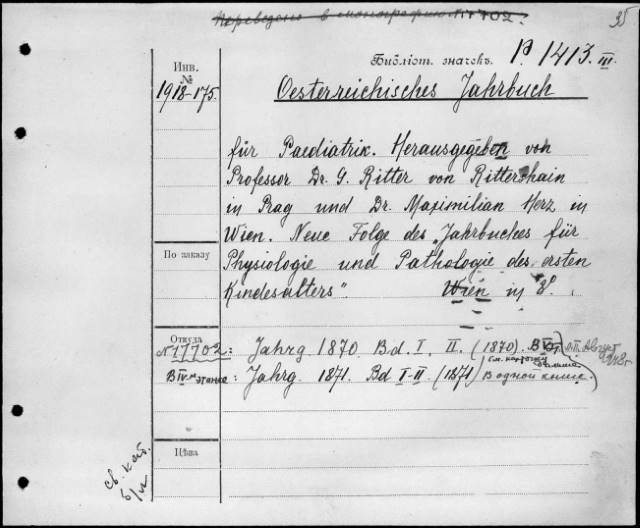 Переведено в монографию №17702.
35
Библіот. значекъ. P. 1413. III.
Инв.
№
1918-175.
Oesterreichisches Jahrbuch
für Paediatrik. Herausgegeben von
Professor Dr. G. Ritter von Rittershain
in Prag und Dr. Maximilian Herz in
Wien. Neue Folge des „Jahrbuches für
Physiologie und Pathologie des ersten
Kindesalters". Wien in 8°.
По заказу
Откуда
№17702: Jahrg 1870. Bd. I, II. (1870).
В IV-м этаже: Jahrg. 1871. Bd I-II (1871) В одной книге.
см. карточку
Цѣна
св. кат.